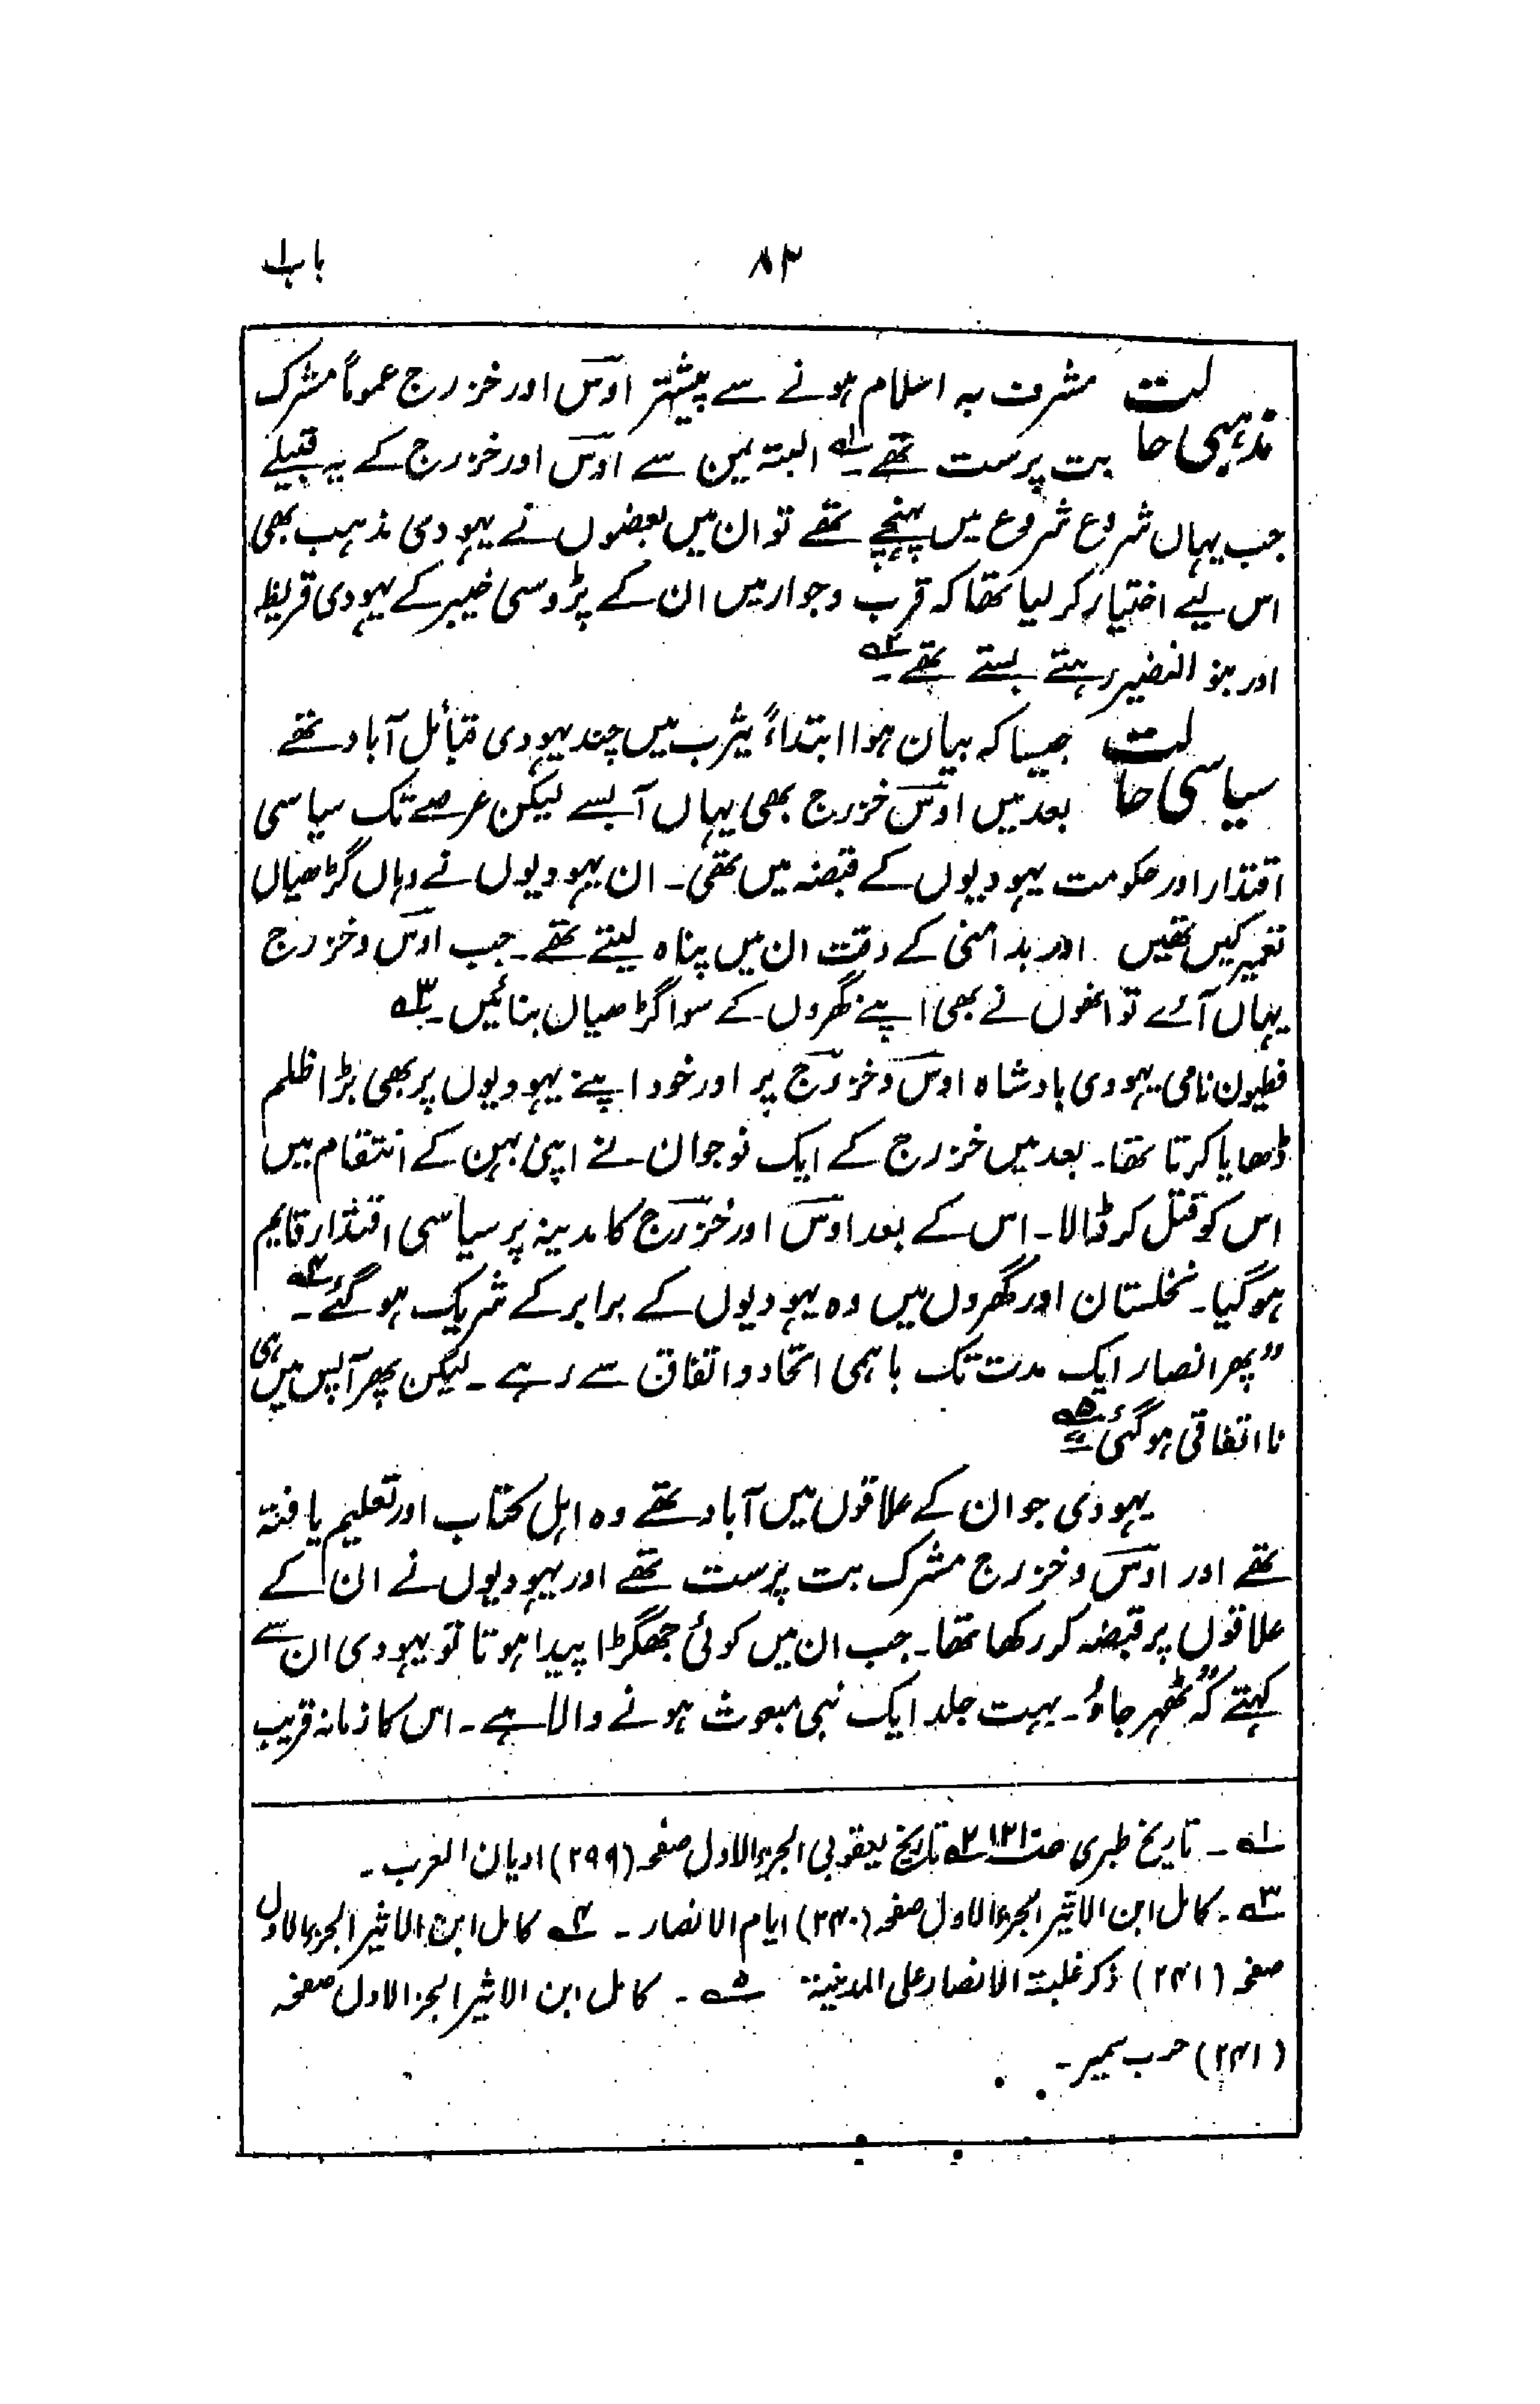 باب ۱
۸۳
مذہبی حالت مشرف بہ اسلام ہونے سے پیشتر اوس اور خزرج عموماً مشرک
بت پرست تھے ۱؎ البتہ یمن سے اوس اور خزرج کے یہ قبیلے
جب یہاں شروع شروع میں پہنچے تھے تو ان میں بعضوں نے یہودی مذہب بھی
اس لیے اختیار کر لیا تھا کہ قرب و جوار میں ان کے پڑوسی خیبر کے یہودی قریظہ
اور بنو النضیر رہتے بستے تھے ۲؎۔
سیاسی حالت جیسا کہ بیان ہوا ابتداءً یثرب میں چند یہودی قبائل آباد تھے
بعد میں اوس خزرج بھی یہاں آبسے لیکن عرصے تک سیاسی
اقتدار اور حکومت یہودیوں کے قبضہ میں تھی۔ ان یہودیوں نے وہاں گڑھیاں
تعمیر کیں تھیں اور بدامنی کے وقت ان میں پناہ لیتے تھے۔ جب اوس و خزرج
یہاں آئے تو انھوں نے بھی اپنے گھروں کے سوا گڑھیاں بنائیں۔ ۳؎
فطیون نامی یہودی بادشاہ اوس و خزرج پر اور خود اپنے یہودیوں پر بھی بڑا ظلم
ڈھایا کرتا تھا۔ بعد میں خزرج کے ایک نوجوان نے اپنی بہن کے انتقام میں
اس کو قتل کر ڈالا۔ اس کے بعد اوس اور خزرج کا مدینہ پر سیاسی اقتدار قایم
ہوگیا۔ نخلستان اور گھروں میں وہ یہودیوں کے برابر کے شریک ہوگئے۔ ۴؎
”پھر انصار ایک مدت تک باہمی اتحاد و اتفاق سے رہے۔ لیکن پھر آپس میں ہی
نا اتفاقی ہوگئی“ ۵؎
یہودی جو ان کے علاقوں میں آباد تھے وہ اہل کتاب اور تعلیم یافتہ
تھے اور اوس و خزرج مشرک بت پرست تھے اور یہودیوں نے ان کے
علاقوں پر قبضہ کر رکھا تھا۔ جب ان میں کوئی جھگڑا پیدا ہوتا تو یہودی ان سے
کہتے کہ ”ٹھہر جاؤ۔ بہت جلد ایک نبی مبعوث ہونے والا ہے۔ اس کا زمانہ قریب
۱؎۔ تاریخ طبری ص ۱۲۱ ۲؎ تاریخ یعقوبی الجزء الاول صفحہ (۲۹۹) ادیان العرب۔
۳؎۔ کامل ابن الاثیر الجزء الاول صفحہ (۲۴۰) ایام الانصار۔ ۴؎ کامل ابن الاثیر الجزء الاول
صفحہ (۲۴۱) ذکر غلبتہ الانصار علی المدینۃ ۵؎۔ کامل ابن الاثیر الجز الاول صفحہ
(۲۴۱) حرب سمیر۔